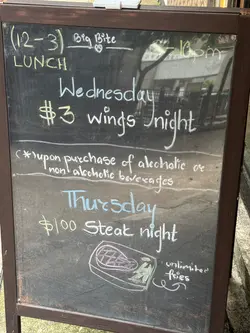 (12-3) Big Bite
LUNCH
Wednesday
$3 wings night
(*upon purchase of alcoholic or
non alcoholic beverages
Thursday
$100 Steak night
unlimited
fries